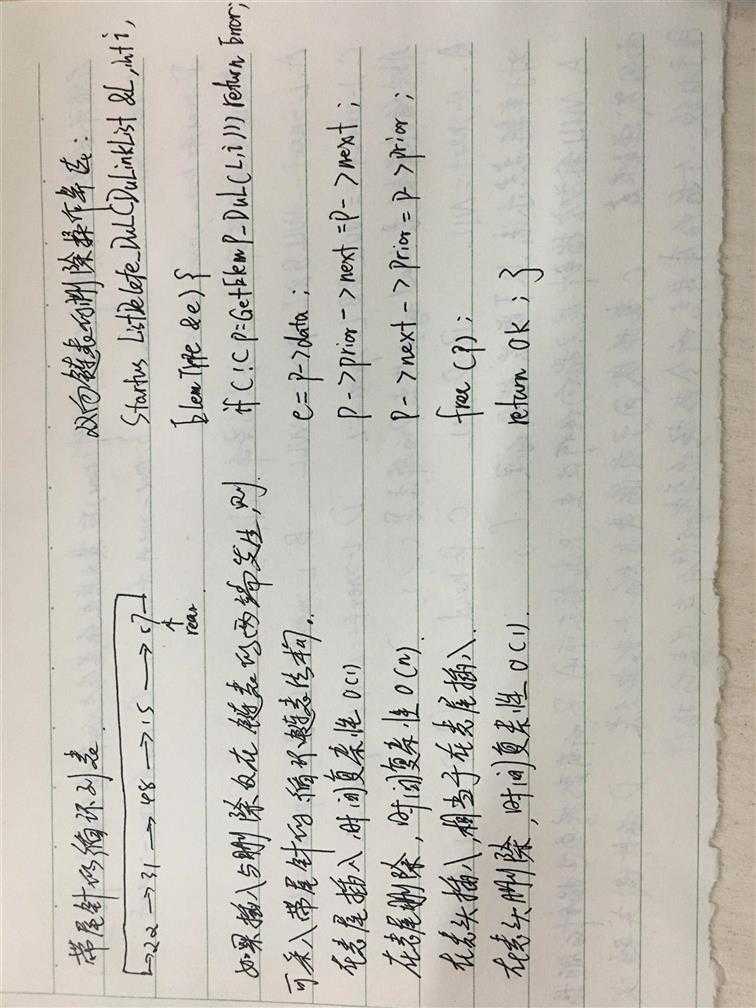 带尾针的循环列表
22→31→48→15→57
↑
rear
如果插入与删除仅在链表的两端发生,则
可采入带尾针的循环链表结构.
在表尾插入,时间复杂性O(1)
在表尾删除,时间复杂性O(n).
在表头插入,相当于在表尾插入.
在表头删除,时间复杂性O(1).
双向链表的删除操作算法:
Startus ListDelete_DuL(DuLinkList &L,int i,
ElemType &e){
if(!(p=GetElemP_DuL(L,i))) return Error;
e=p->data;
p->prior->next=p->next;
p->next->prior=p->prior;
free(p);
return OK;}